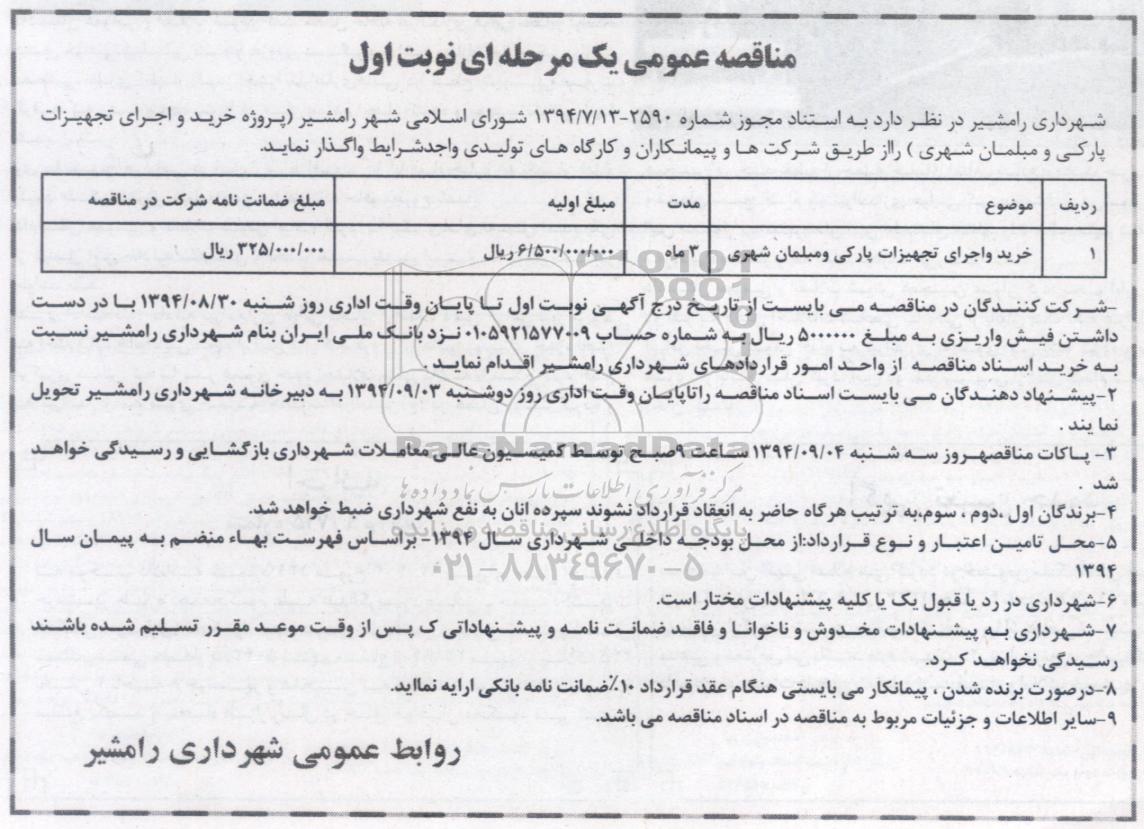 مناقصه عمومی یک مرحله ای نوبت اول
شهرداری رامشیر در نظر دارد به استناد مجوز شماره ۲۵۹۰-۱۳۹۴/۷/۱۳ شورای اسلامی شهر رامشیر (پروژه خرید و اجرای تجهیزات
پارکی و مبلمان شهری ) رااز طریق شرکت ها و پیمانکاران و کارگاه های تولیدی واجدشرایط واگذار نماید.
ردیف موضوع مدت مبلغ اولیه مبلغ ضمانت نامه شرکت در مناقصه
۱ خرید واجرای تجهیزات پارکی ومبلمان شهری ۳ماه ۶/۵۰۰/۰۰۰/۰۰۰ریال ۳۲۵/۰۰۰/۰۰۰ ریال
۱-شرکت کنندگان در مناقصه می بایست از تاریخ درج آگهی نوبت اول تا پایان وقت اداری روز شنبه ۱۳۹۴/۰۸/۳۰ با در دست
داشتن فیش واریزی به مبلغ ۵۰۰/۰۰۰ ریال به شماره حساب ۰۱۰۵۹۲۱۵۷۷۰۰۹ نزد بانک ملی ایران بنام شهرداری رامشیر نسبت
به خرید اسناد مناقصه از واحد امور قراردادهای شهرداری رامشیر اقدام نمایند.
۲-پیشنهاد دهندگان می بایست اسناد مناقصه راتاپایان وقت اداری روز دوشنبه ۱۳۹۴/۰۹/۰۳ به دبیرخانه شهرداری رامشیر تحویل
نما یند .
۳- پاکات مناقصهروز سه شنبه ۱۳۹۴/۰۹/۰۴ ساعت ۹صبح توسط کمیسیون عالی معاملات شهرداری بازگشایی و رسیدگی خواهد
شد .
ParsNamadData
مرکز فرآوری اطلاعات پارس نماد داده ها
۴-برندگان اول ،دوم ، سوم،به ترتیب هرگاه حاضر به انعقاد قرارداد نشوند سپرده انان به نفع شهرداری ضبط خواهد شد.
پایگاه اطلاع رسانی مناقصه و مزایده
۵-محل تامین اعتبار و نوع قرارداد:از محل بودجه داخلی شهرداری سال ۱۳۹۴- براساس فهرست بهاء منضم به پیمان سال
۱۳۹۴
۰۲۱-۸۸۳۴۹۶۷۰-۵
۶-شهرداری در رد یا قبول یک یا کلیه پیشنهادات مختار است.
۷-شهرداری به پیشنهادات مخدوش و ناخوانا و فاقد ضمانت نامه و پیشنهاداتی ک پس از وقت موعد مقرر تسلیم شده باشند
رسیدگی نخواهد کرد.
۸-درصورت برنده شدن ، پیمانکار می بایستی هنگام عقد قرارداد ۱۰٪ضمانت نامه بانکی ارایه نمااید
۹-سایر اطلاعات و جزئیات مربوط به مناقصه در اسناد مناقصه می باشد.
روابط عمومی شهرداری رامشیر